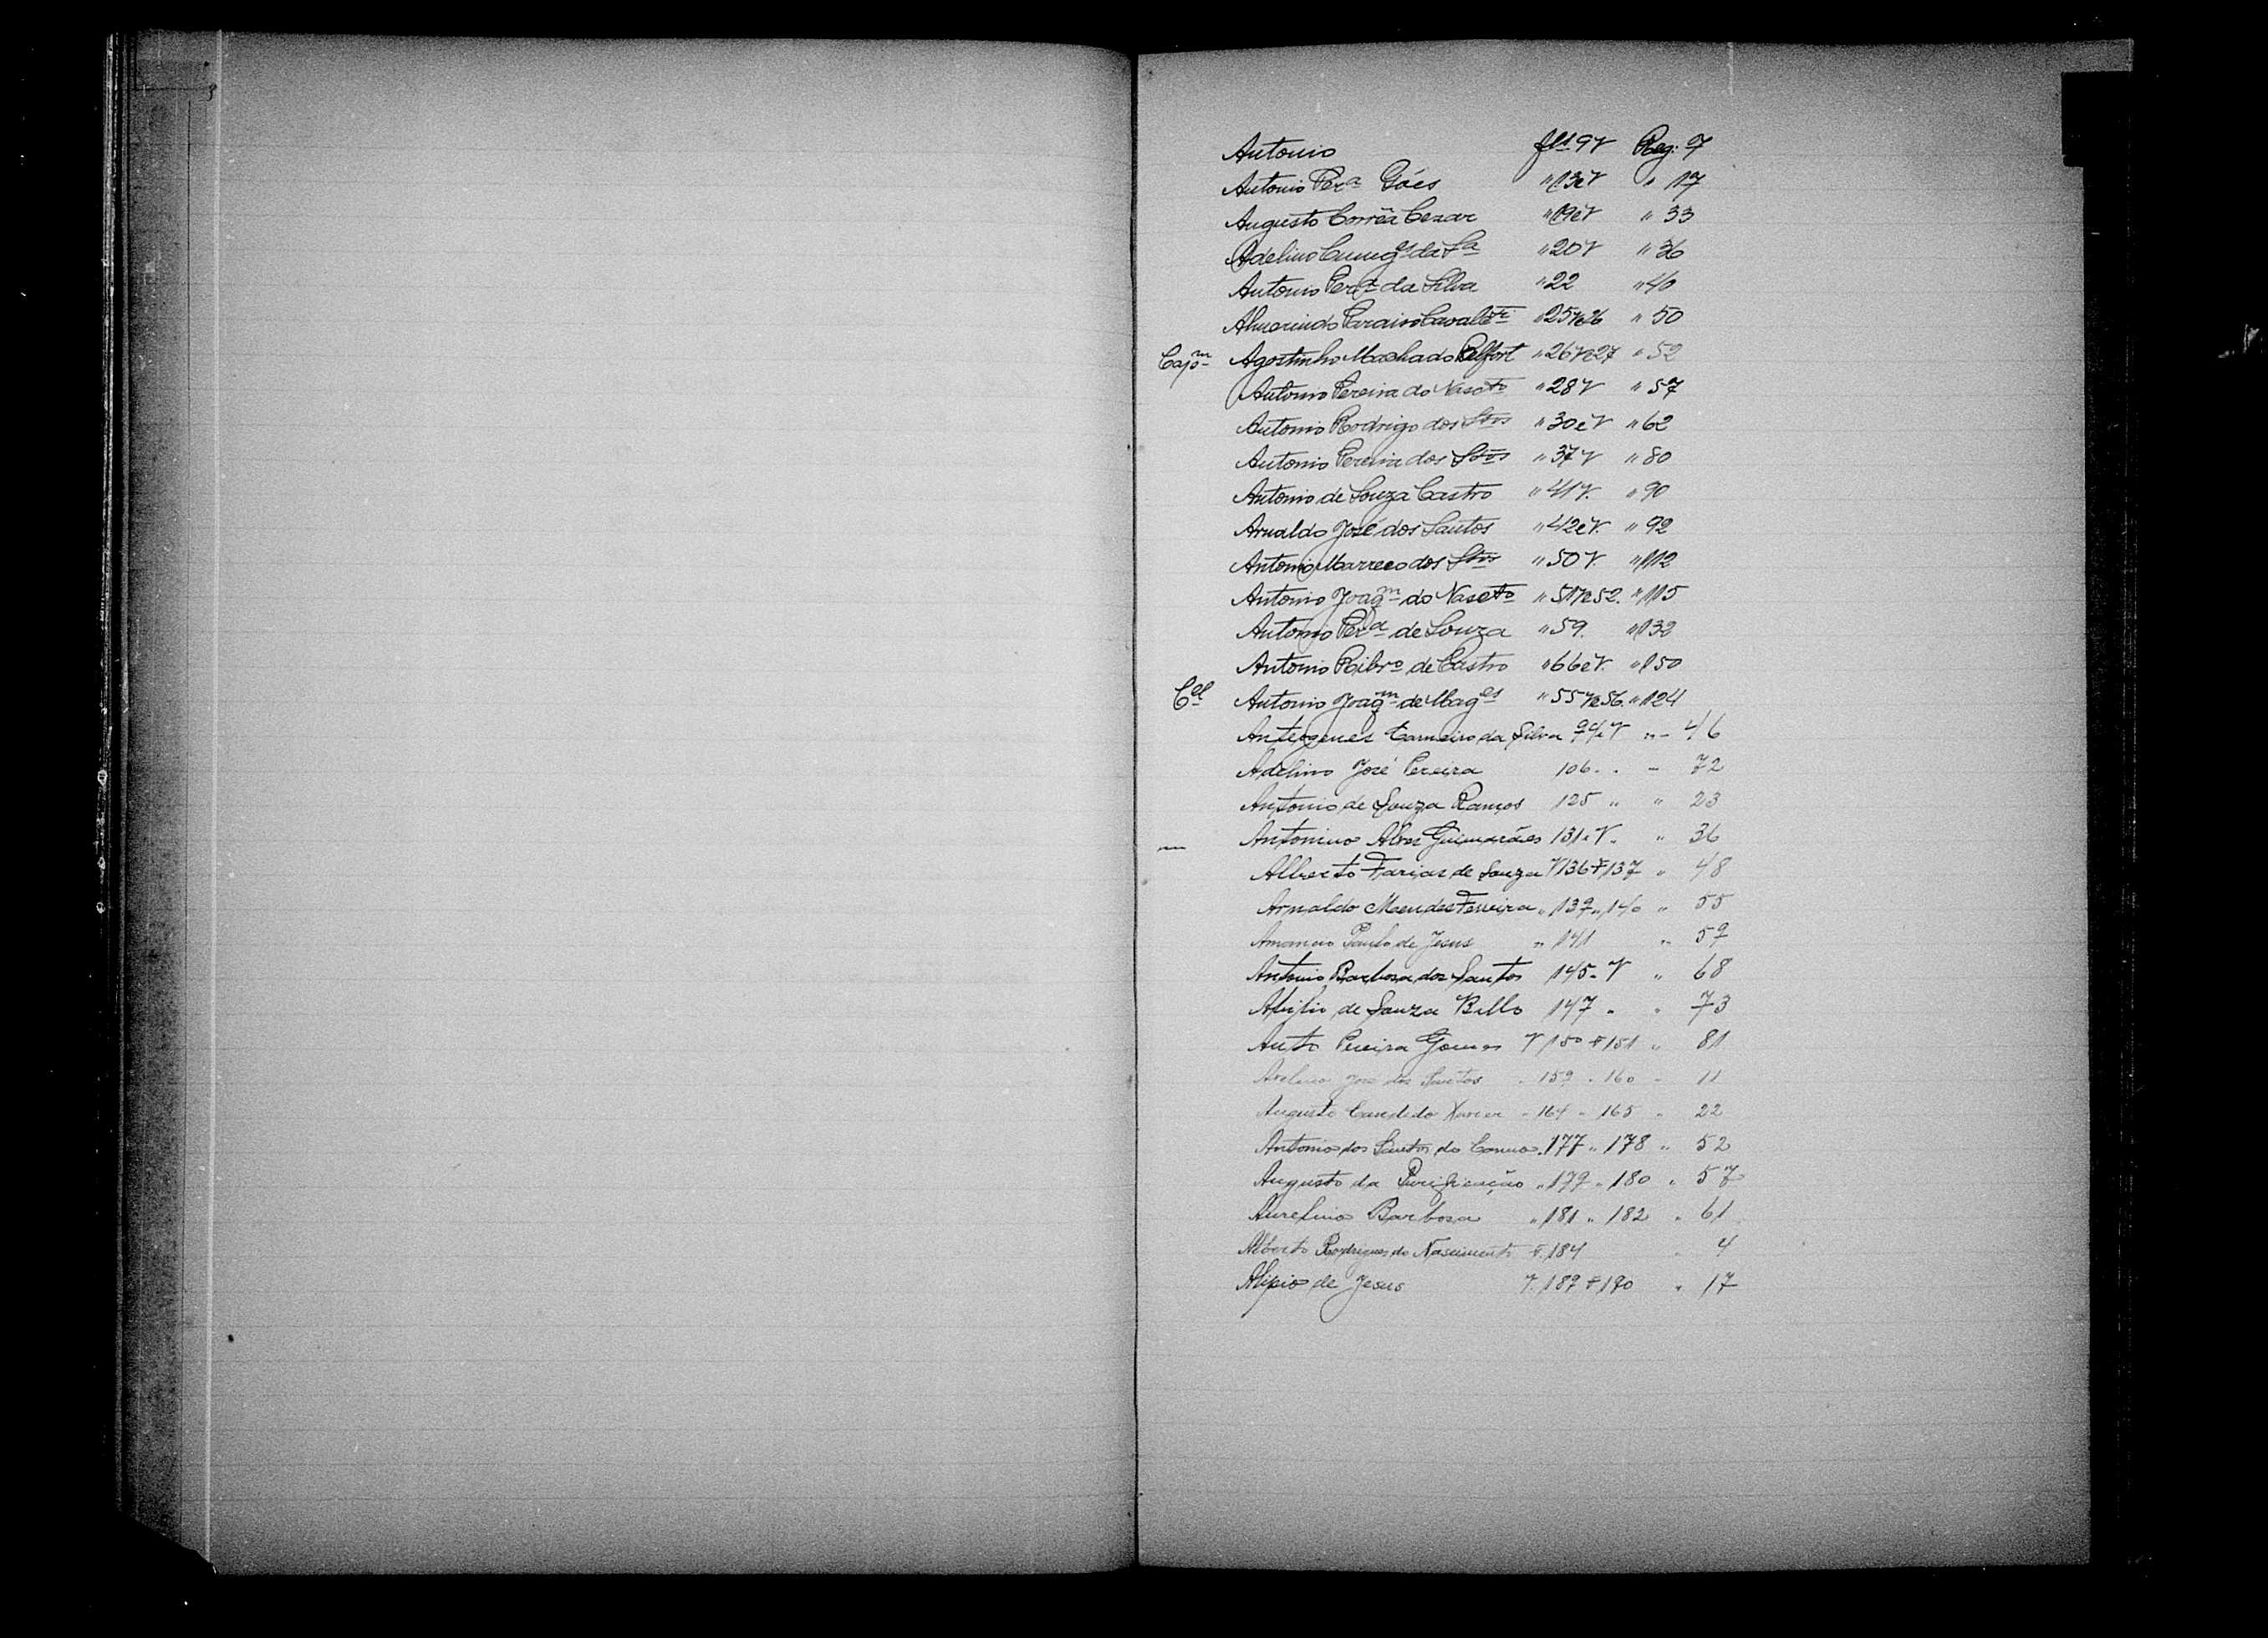 Antonio fls 9 V Reg: 7
Antonio Perª Góes " 13 e V " 17
Augusto Corrêa Cezar " 19 e V " 33
Adelino da Sª " 20 V " 36
Antonio Perª da Silva " 22 " 40
Almerindo Paraiso Cavalcte " 25 V e 26 " 50
Capm Agostinho Machado Belfort " 26 V e 27 " 52
Antonio Pereira do Nascto " 28 V " 57
Antonio Rodrigo dos Stos " 30 e V " 62
Antonio Pereira dos Stos " 37 V " 80
Antonio de Souza Castro " 41 V. " 90
Arnaldo José dos Santos " 42 e V. " 92
Antonio Marreco dos Stos " 50 V. " 112
Antonio Joaqm do Nascto " 51 V e 52. " 115
Antonio Perª de Souza " 59. " 132
Antonio Ribro de Castro " 66 e V. " 150
Cel Antonio Joaqm de Mages " 55 V e 56. " 124
Anteogenes Carneiro da Silva 94 e V " - 46
Adelino José Pereira 106 . . - 72
Antonio de Souza Ramos 125 " " 23
Antonino Alves Guimarães 131 e V. " 36
Alberto Farias de Souza V 136 F 137 " 48
Arnaldo Mendes Ferreira " 139 " 140 " 55
Amancio Paulo de Jesus " 141 " 59
Antonio Barbosa dos Santos 145 - V " 68
Abilio de Souza Bello 147 " " 73
Auto Pereira Gomes V 150 F 151 " 81
Avelino José dos Santos " 159 " 160 " 11
Augusto Candido Xavier " 164 " 165 " 22
Antonio dos Santos do Carmo " 177 " 178 " 52
Augusto da Purificação " 179 " 180 " 57
Aurelino Barbosa " 181 " 182 " 61
Alberto Rodrigues do Nascimento F. 184 " 4
Alipio de Jesus V. 189 F 190 " 17